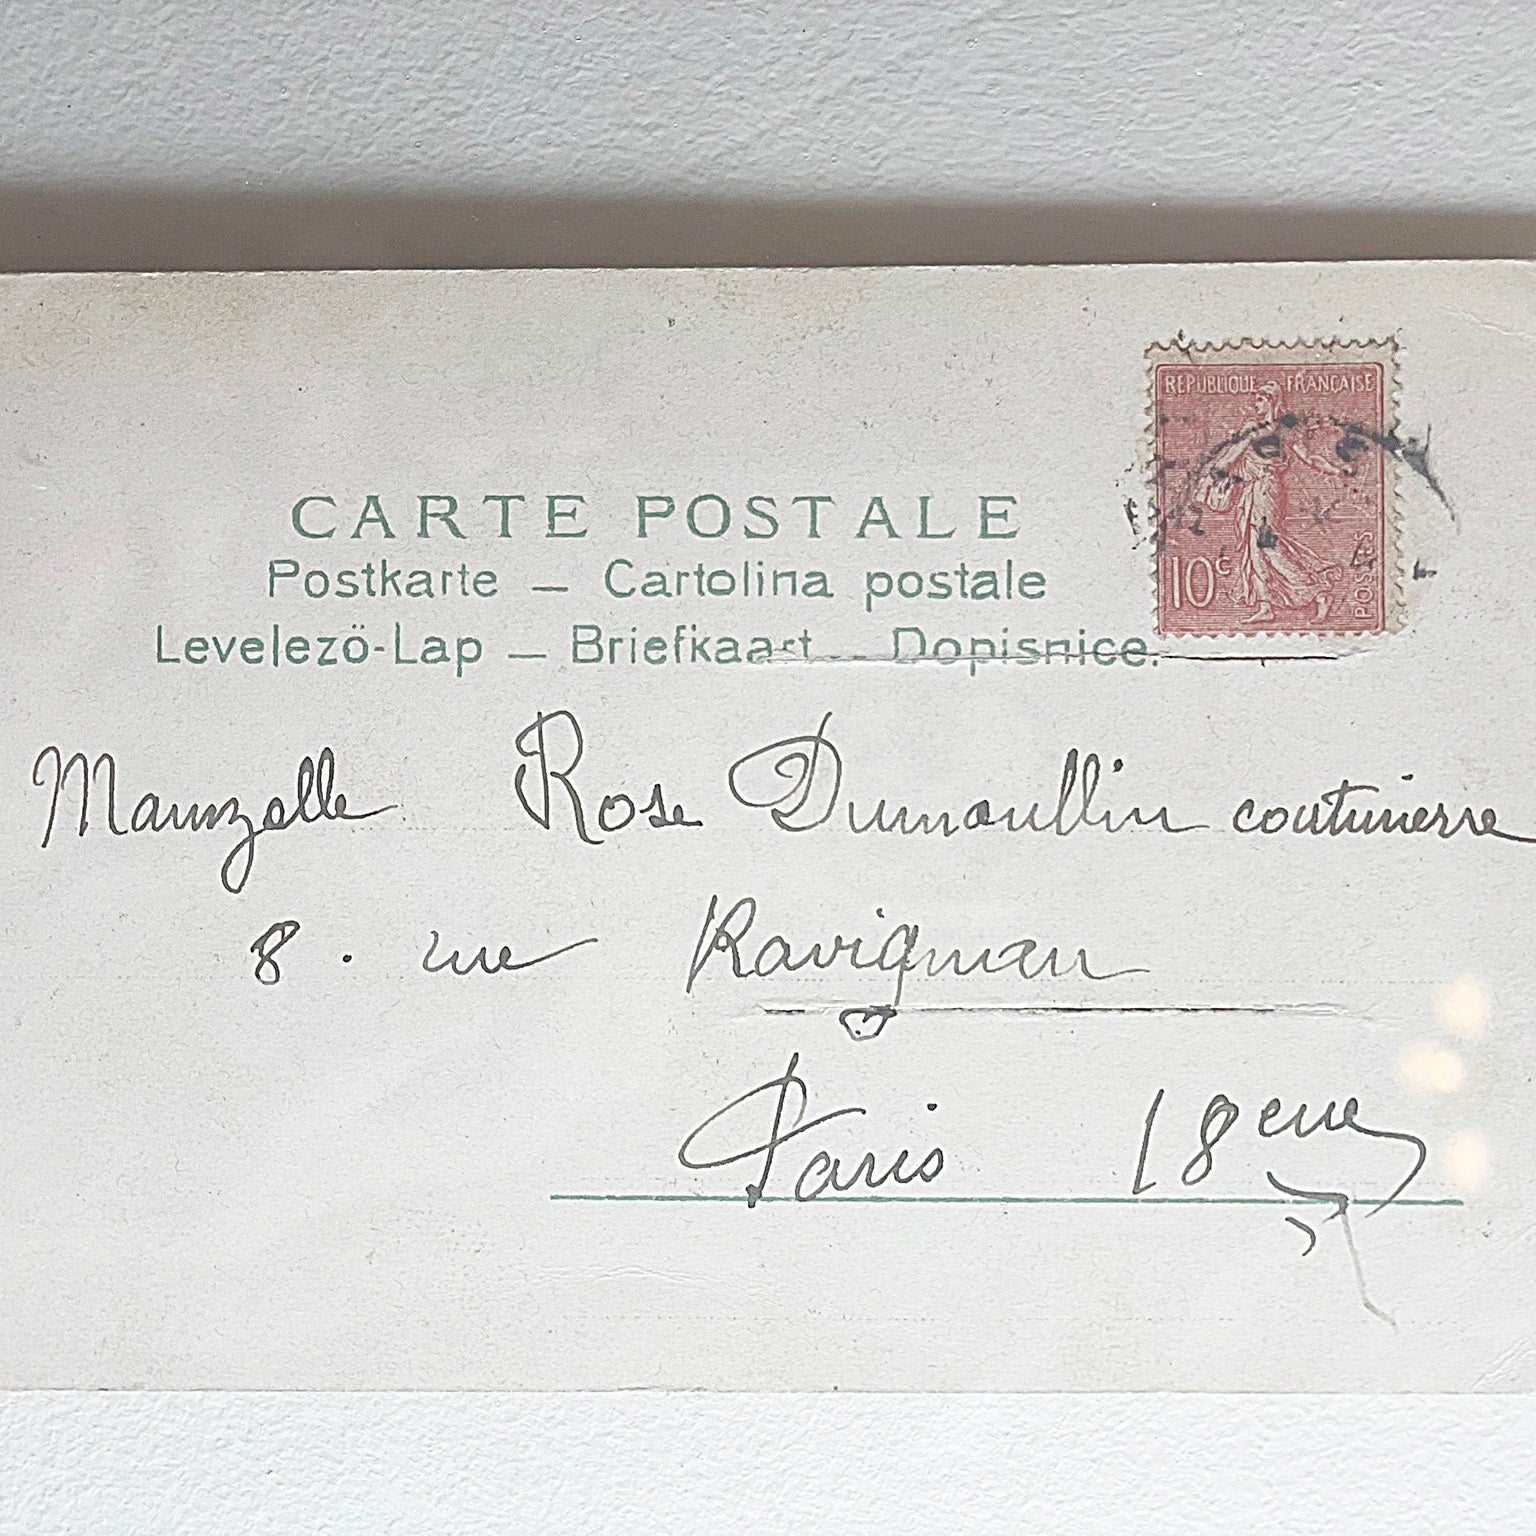 CARTE POSTALE
Postkarte — Cartolina postale
Levelezö-Lap — Briefkaart — Dopisnice.
REPUBLIQUE FRANÇAISE
10c
POSTES
Mamzelle Rose Dumoullin couturierre
8. rue Ravignan
Paris 18eme